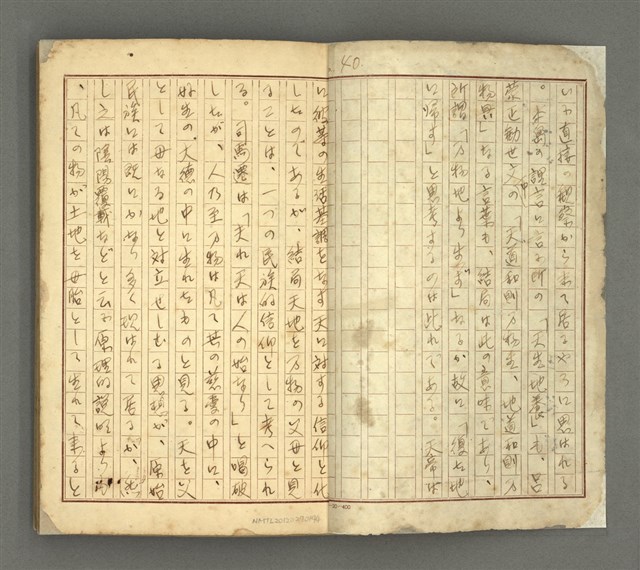 40.
いや直接の観察から来て居るやうに思はれる
。本島の諺言に言ふ所の「天生地養」も、呂
蒙正勧世文の「天道和則万物生、地道和則万
物興」なる言葉も、結局は此の意味であり、
所謂「万物地より生ず」なるが故に「復た地
に帰す」と思考するのは此れである。 天帝は
に彼等の生活基調をなす天に対する信仰と化
したのであるが、結局天地を万物の父母と見
ることは、一つの民族的信仰として考へられ
る。司馬遷は「夫れ天は人の始なり」と喝破
したが、人乃至万物は凡て其の慈愛の中に、
好生の大徳の中に生れたものと見る。天を父
として母なる地と対立せしむる思想が、原始
民族には既にかなり多く現はれて居るが、
之は陰陽覆載などと云ふ原理的説明より
、凡ての物が土地を母胎として生れて来ると
20×400